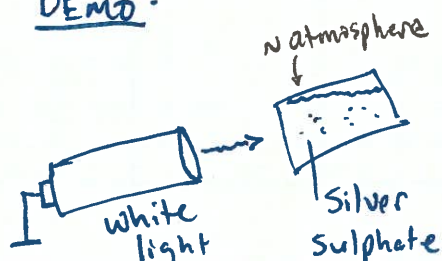 DEMO:
~ atmosphere
white
light
Silver
Sulphate